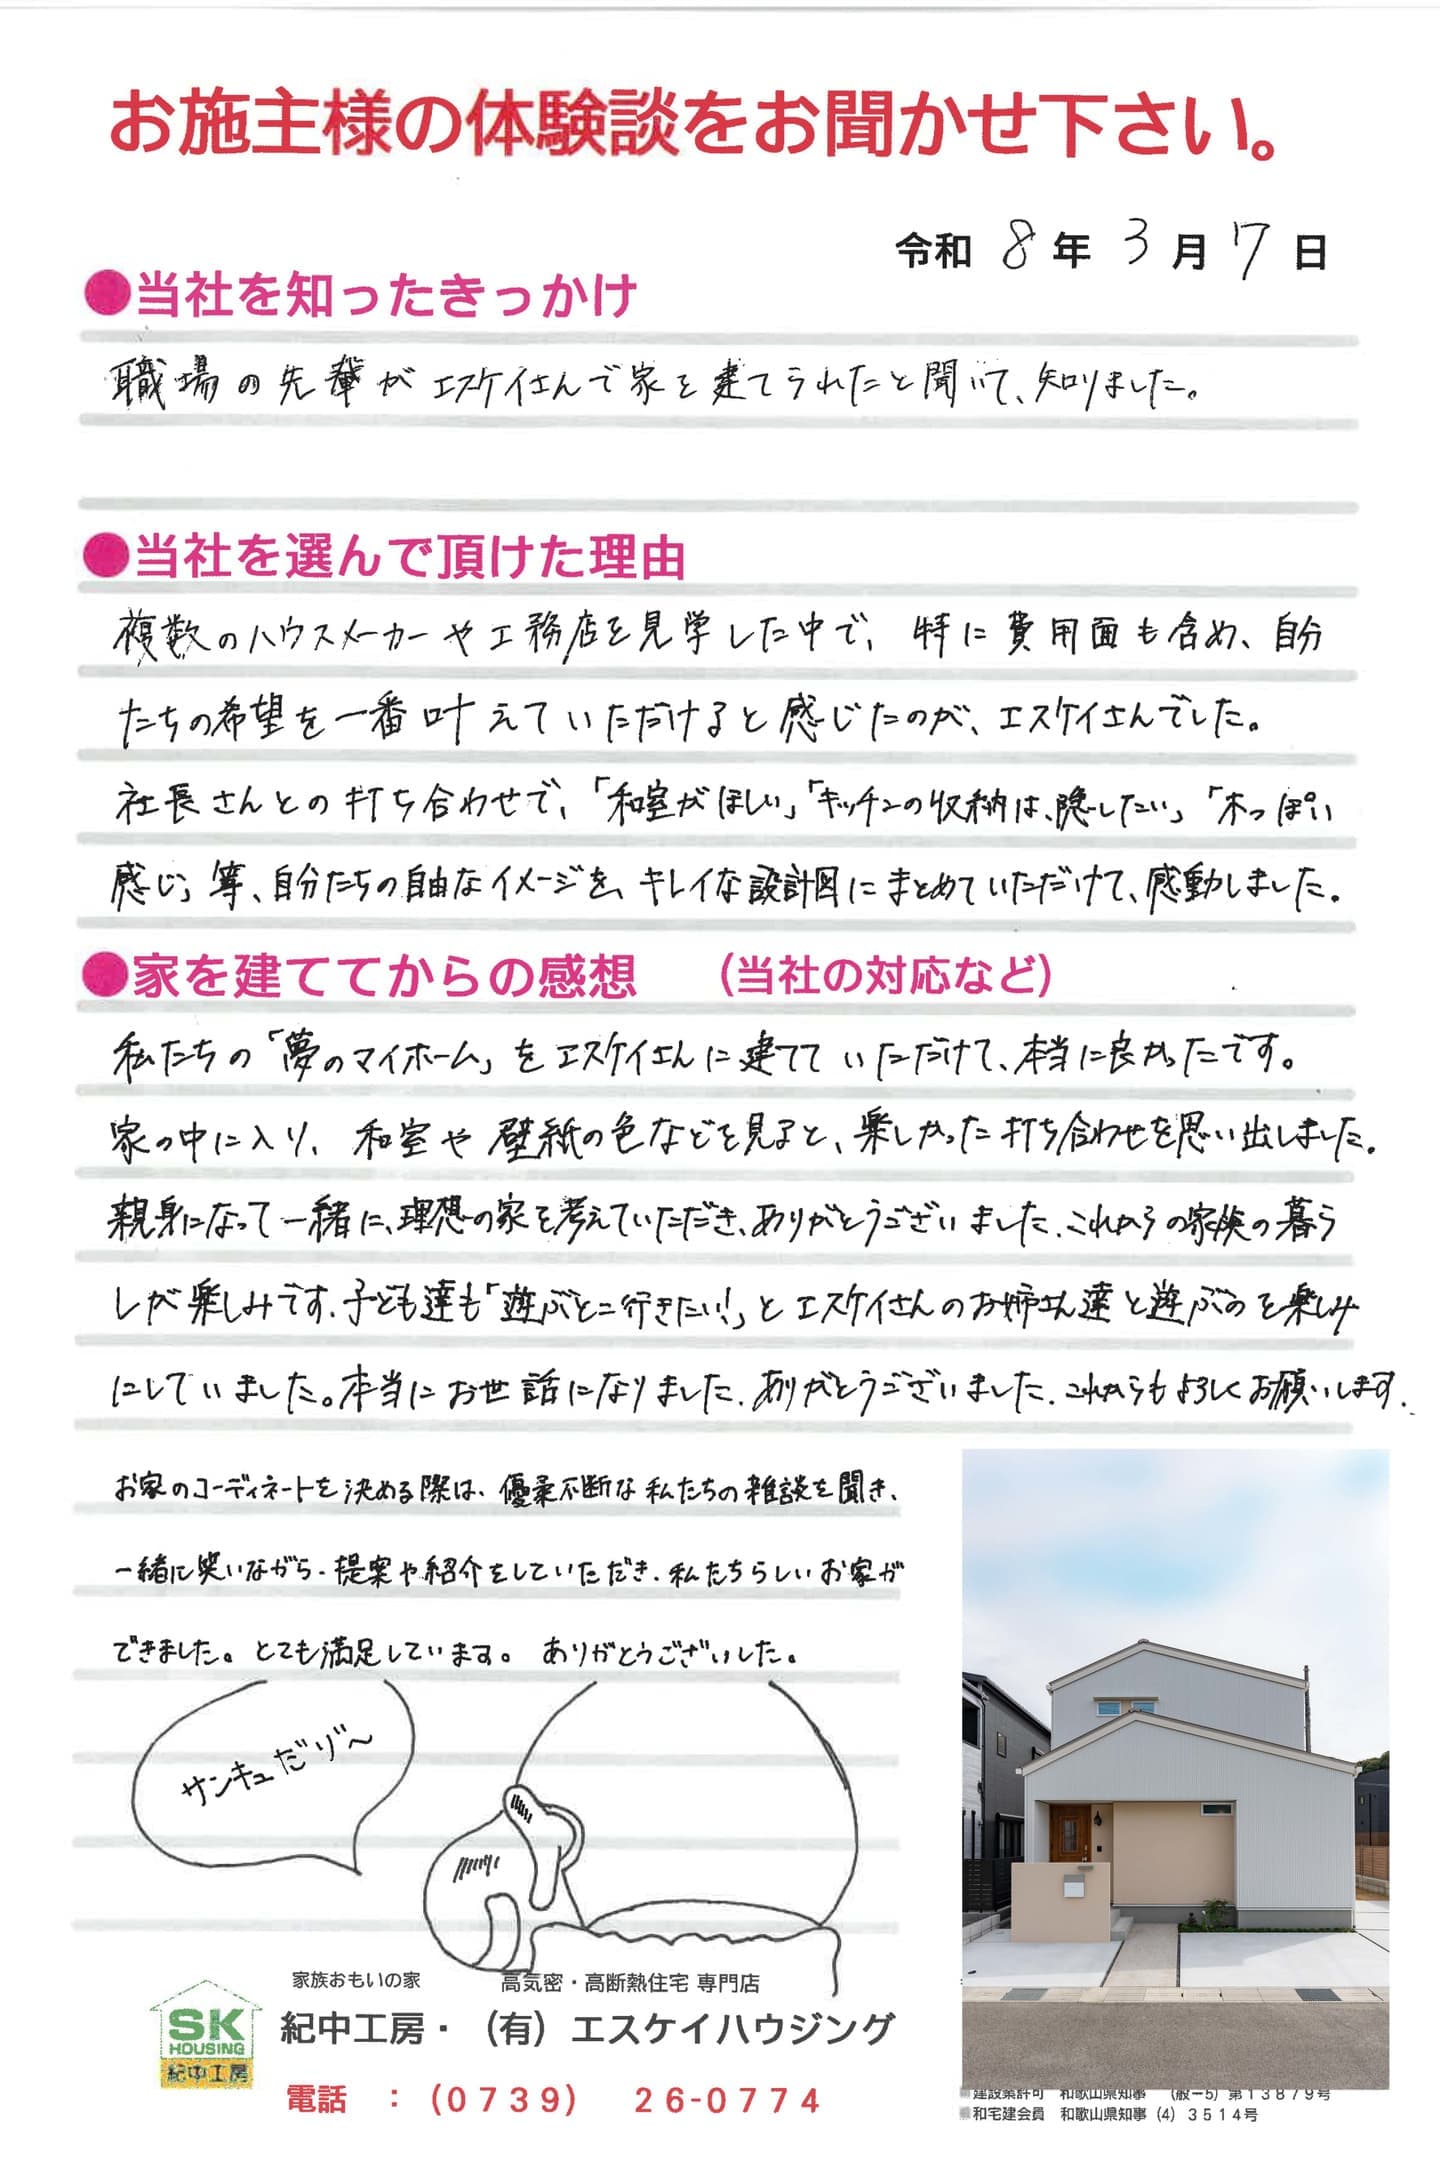 お施主様の体験談をお聞かせ下さい。
令和 8 年 3 月 7 日
●当社を知ったきっかけ
職場の先輩がエスケイさんで家を建てられたと聞いて、知りました。
●当社を選んで頂けた理由
複数のハウスメーカーや工務店を見学した中で、特に費用面も含め、自分
たちの希望を一番叶えていただけると感じたのが、エスケイさんでした。
社長さんとの打ち合わせで、「和室がほしい」「キッチンの収納は、隠したい」「木っぽい
感じ」等、自分たちの自由なイメージを、キレイな設計図にまとめていただけて、感動しました。
●家を建ててからの感想 （当社の対応など）
私たちの「夢のマイホーム」をエスケイさんに建てていただけて、本当に良かったです。
家の中に入り、和室や壁紙の色などを見ると、楽しかった打ち合わせを思い出しました。
親身になって一緒に、理想の家を考えていただき、ありがとうございました。これからの家族の暮ら
しが楽しみです。子ども達も「遊ぶとこ行きたい!」とエスケイさんのお姉さん達と遊ぶのを楽しみ
にしていました。本当にお世話になりました。ありがとうございました。これからもよろしくお願いします。
お家のコーディネートを決める際は、優柔不断な私たちの雑談を聞き、
一緒に笑いながら、提案や紹介をしていただき、私たちらしいお家が
できました。とても満足しています。 ありがとうございした。
サンキュだゾ〜
家族おもいの家 高気密・高断熱住宅 専門店
紀中工房・（有）エスケイハウジング
SK
HOUSING
紀中工房
電話 ：（0739） 26-0774
建設業許可 和歌山県知事 （般－5）第13879号
和宅建会員 和歌山県知事（4）3514号